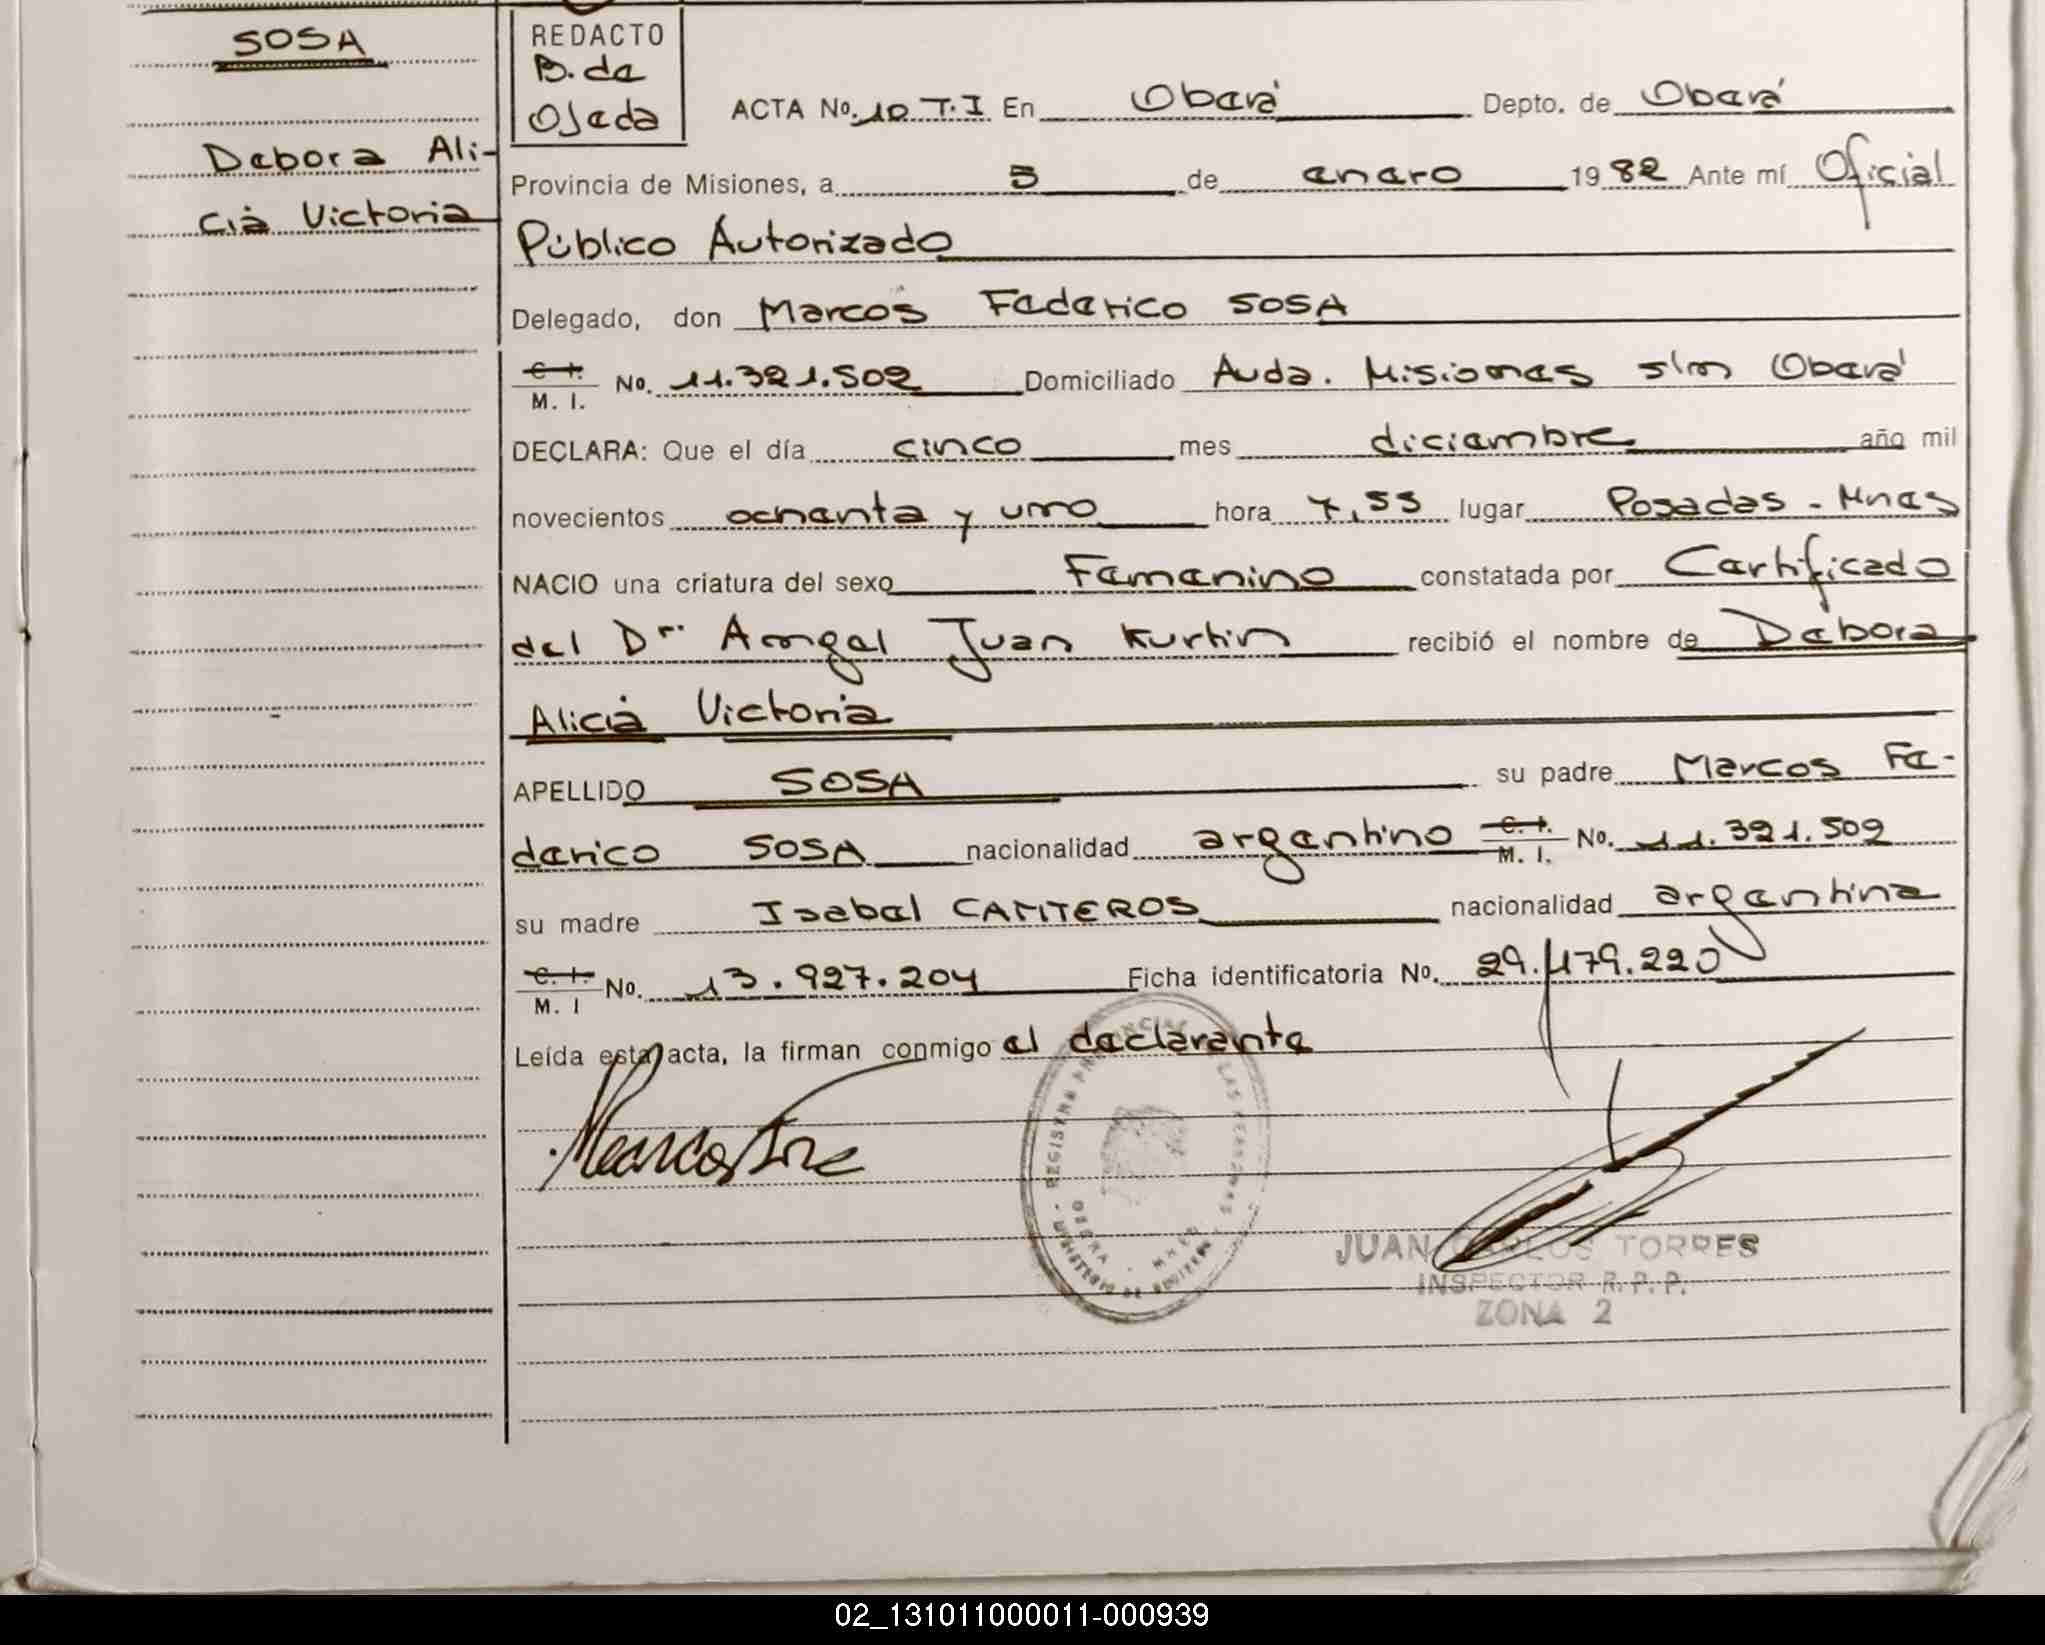 SOSA
Debora Ali-
cia Victoria
REDACTO
B. de
Ojeda
ACTA No. 10 T.I En Oberá Depto. de Oberá
Provincia de Misiones, a 5 de enero 1982 Ante mí Oficial
Público Autorizado
Delegado, don Marcos Federico SOSA
C. I. M. I. No. 11.321.502 Domiciliado Avda. Misiones s/n Oberá
DECLARA: Que el día cinco mes diciembre año mil
novecientos ochenta y uno hora 7,55 lugar Posadas - Mnes
NACIO una criatura del sexo Femenino constatada por Certificado
del Dr. Angel Juan Kurtin recibió el nombre de Debora
Alicia Victoria
APELLIDO SOSA su padre Marcos Fe-
derico SOSA nacionalidad argentino C. I. M. I. No. 11.321.502
su madre Isabel CANTEROS nacionalidad argentina
C. I. M. I No. 13.927.204 Ficha identificatoria No. 29.179.220
Leída esta acta, la firman conmigo el declarante
REGISTRO PROVINCIAL LAS PERSONAS
OBERA - MNES
MINISTERIO DE GOBIERNO
JUAN CARLOS TORRES
INSPECTOR R.P.P.
ZONA 2
02_131011000011-000939